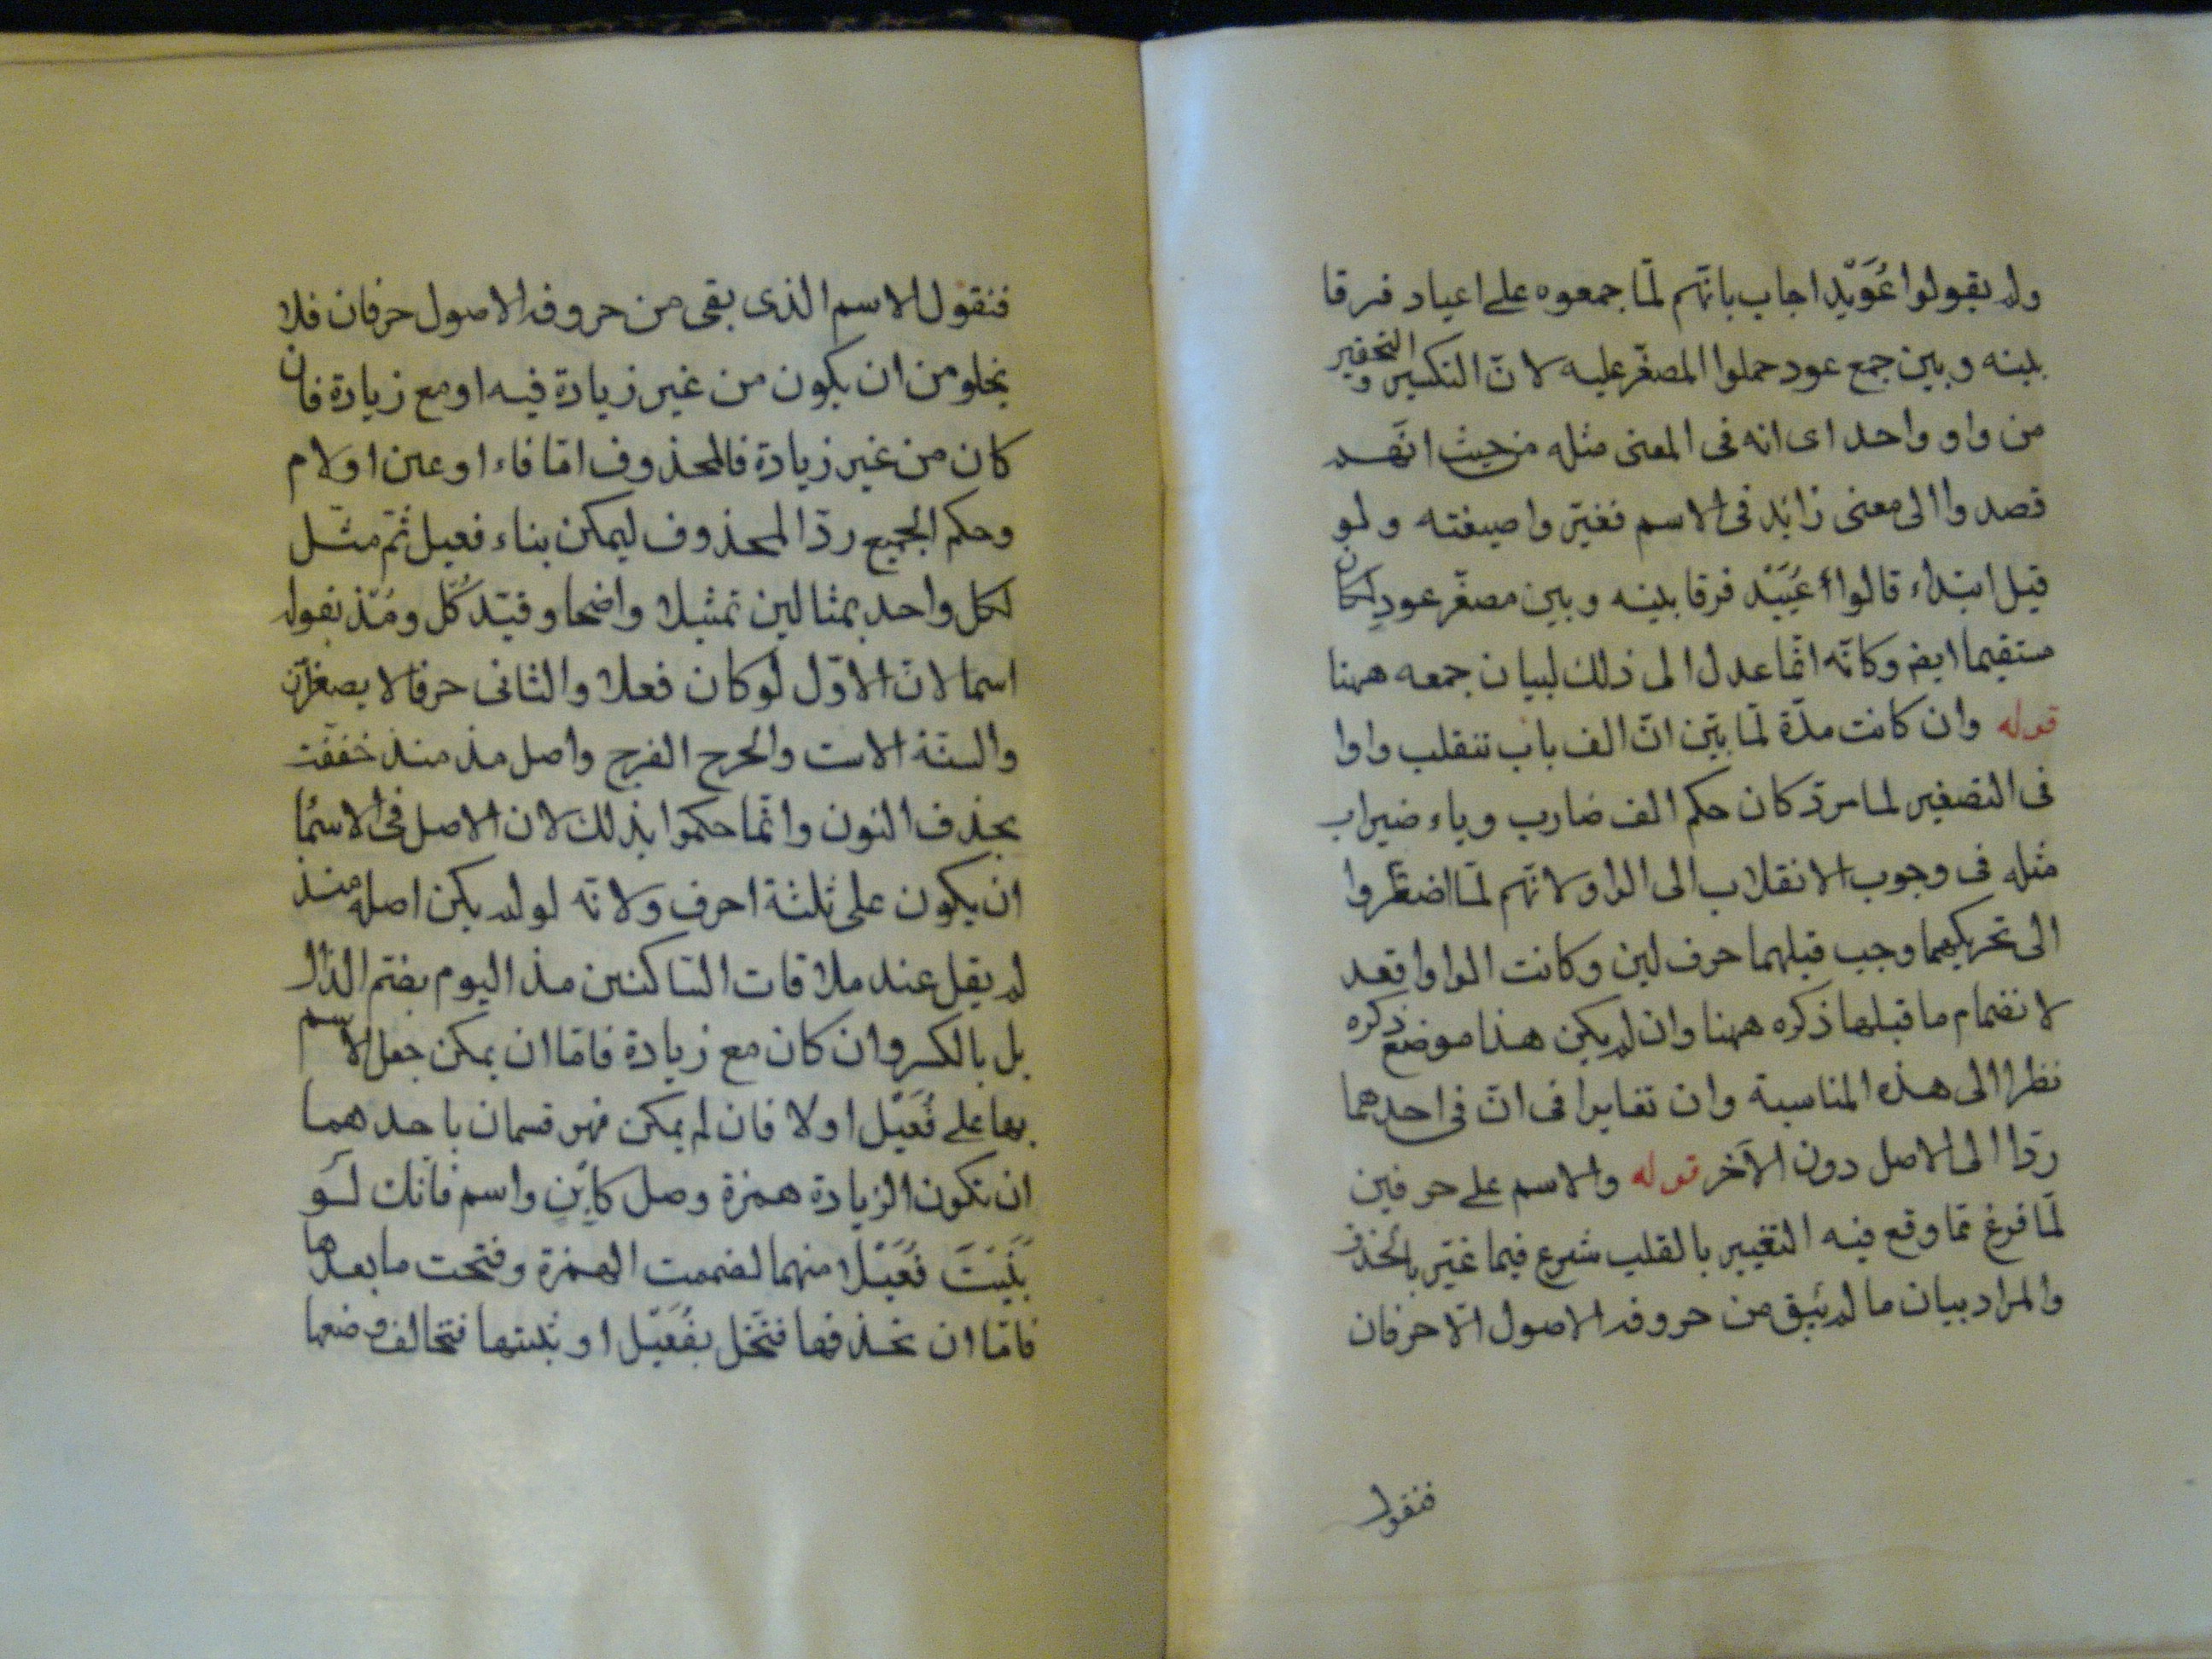 ولم يقولوا عُوَيْد اجاب بانّهم لمّا جمعوه على اعياد فرقا
بينه وبين جمع عود حملوا المصغّر عليه لانّ التكسير والتحقير
من واو واحد اى انه فى المعنى مثله من حيث انّهم
قصدوا الى معنى زائد فى الاسم فغيّروا صيغته ولو
قيل ابتداء قالوا عُيَيْد فرقا بينه وبين مصغّر عودٍ لكان
مستقيما ايضا وكانّه انّما عدل الى ذلك لبيان جمعه ههنا
قوله وان كانت مدّة لمّا بيّن انّ الف باب تنقلب واوا
فى التصغير لما مرّ وكان حكم الف ضارب وياء ضيراب
مثله فى وجوب الانقلاب الى الواو لانّهم لمّا اضطّروا
الى تحريكهما وجب قبلهما حرف لين وكانت الواو اقعد
لانضمام ما قبلها ذكره ههنا وان لم يكن هذا موضع ذكره
نظرا الى هذه المناسبة وان تغايرا فى انّ فى احدهما
ردّا الى الاصل دون الآخر قوله والاسم على حرفين
لمّا فرغ ممّا وقع فيه التغيير بالقلب شرع فيما غيّر بالحذف
والمراد بيان ما لم يَبق من حروفه الاصول الّا حرفان
فنقول
فنقول الاسم الذى بقى من حروفه الاصول حرفان فلا
يخلو من ان يكون من غير زيادة فيه او مع زيادة فان
كان من غير زيادة فالمحذوف امّا فاء او عين او لام
وحكم الجميع ردّ المحذوف ليمكن بناء فعيل ثُمّ مثّل
لكل واحد بمثالين تمثيلا واضحا وقيّد كُل ومُذ بقوله
اسما لانّ الاوّل لو كان فعلا والثانى حرفا لا يصغّران
والستة الاست والحرح الفرج واصل مذ منذ خفّفت
بحذف النون وانّما حكموا بذلك لان الاصل فى الاسماء
ان يكون على ثلثة احرف ولانّه لو لم يكن اصله منذ
لم يقل عند ملاقات الساكنين مذ اليوم بضمّ الذال
بل بالكسر وان كان مع زيادة فامّا ان يمكن جعل الاسم
بها على فُعَيْل او لا فان لم يمكن فهو قسمان باحدهما
ان تكون الزيادة همزة وصل كابْنٍ واسم فانّك لو
بَنَيْتَ فُعَيْلًا منهما لضممت الهمزة وفتحت ما بعدها
فامّا ان تحذفها فتخل بفُعَيْل او تثبتها فتخالف وضعها